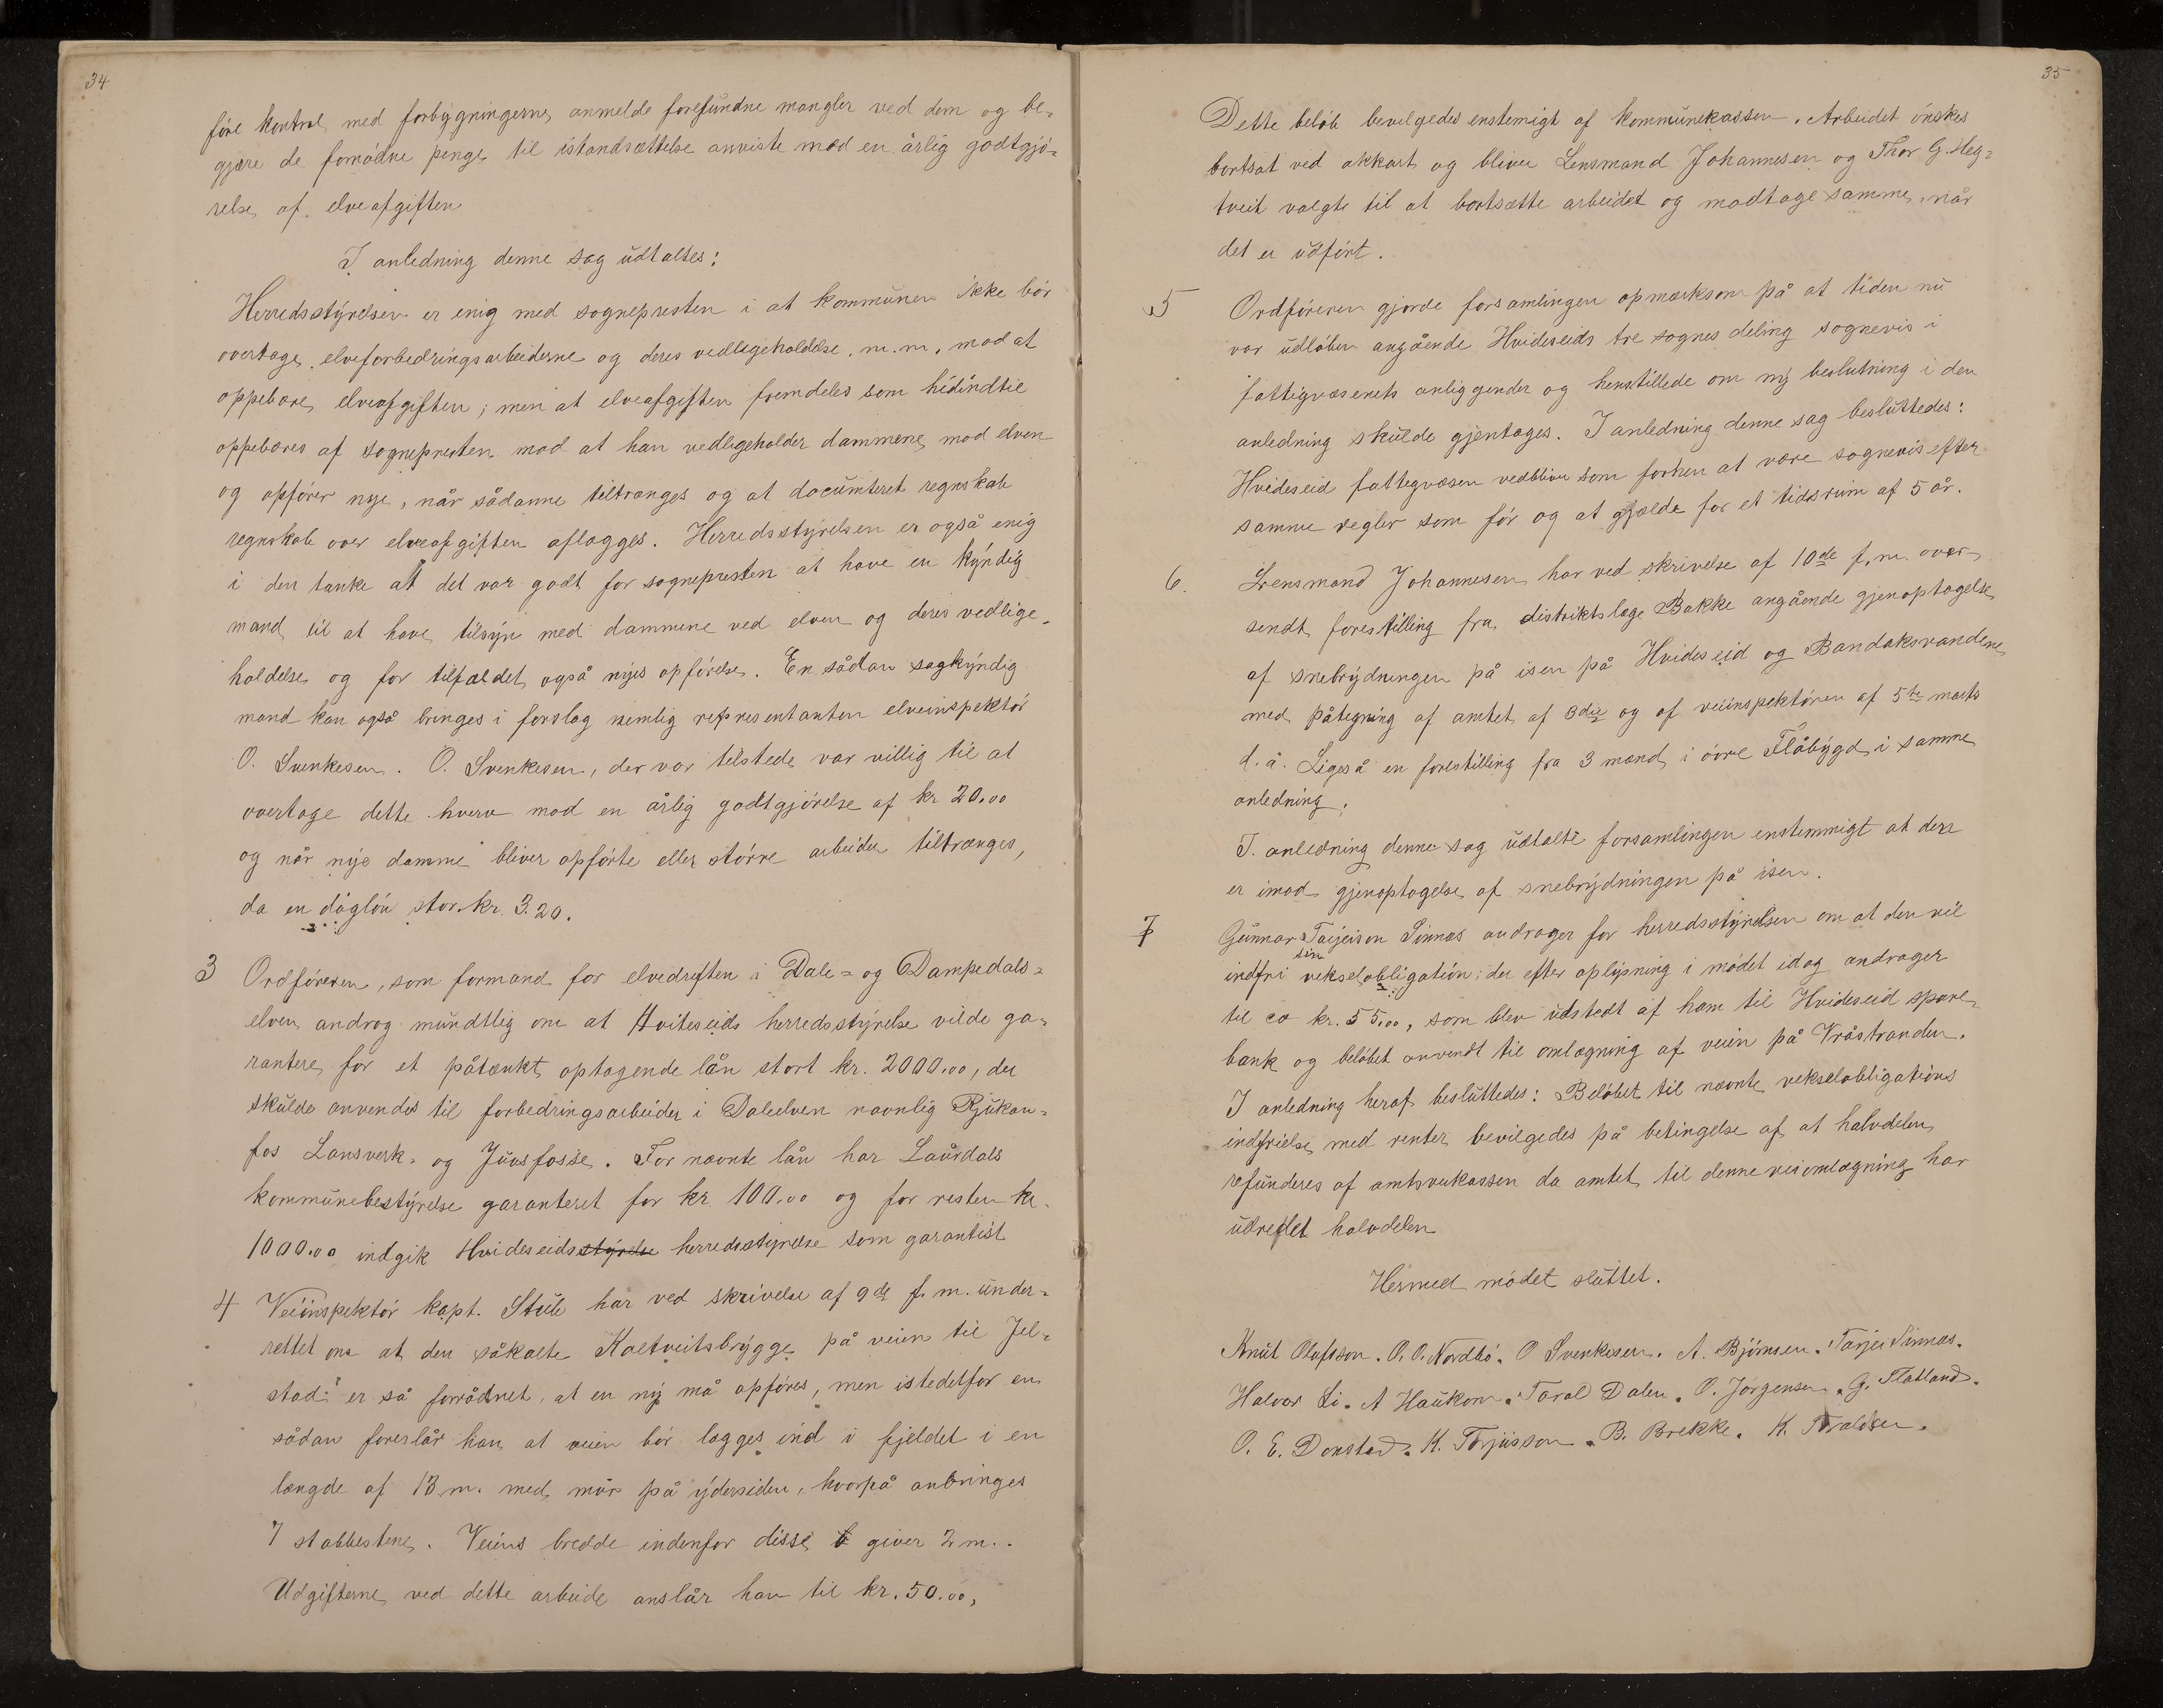 34
føre kontrol med forbygningerne, anmelde forefundne mangler ved dem og be-
gjære de fornødne penge til istandsættelse anviste mod en årlig godtgjø-
relse af elveafgiften
I anledning denne sag udtaltes:
Herredsstyrelsen er enig med sognepresten i at kommunen ikke bør
overtage elveforbedringsarbeiderne og deres vedligeholdelse m.m. mod at
oppebære elveafgiften; men at elveafgiften fremdeles som hidindtil
oppebæres af sognepresten mod at han vedligeholder dammene mod elven
og opfører nye, når sådanne tiltrænges og at documteret regnskab
regnskab over elveafgiften aflægges. Herredsstyrelsen er også enig
i den tanke at det var godt for sognepresten at have en kyndig
mand til at have tilsyn med dammene ved elven og deres vedlige-
holdelse og for tilfældet også nyes opførelse. En sådan sagkyndig
mand kan også bringes i forslag nemlig representanten elveinspektør
O. Svenkesen. O. Svenkesen, der var tilstede var villig til at
overtage dette hverv mod en årlig godtgjørelse af kr 20.00
og når nye damme bliver opførte eller større arbeider tiltrænges,
da en dagløn stor kr. 3.20.
3 Ordføreren, som formand for elvedriften i Dale- og Dampedals-
elven androg mundtlig om at Hviteseids herredsstyrelse vilde ga-
rantere for et påtænkt optagende lån stort kr. 2000.00, der
skulde anvendes til forbedringsarbeider i Daleelven navnlig Rjukan-
fos Lansverk- og Juvsfosse. For nævnte lån har Laurdals
kommunebestyrelse garanteret for kr 100.00 og for resten kr.
1000.00 indgik Hvideseids styrelse herredsstyrelse som garantist
4 Veiinspektør kapt. Stub har ved skrivelse af 9de f. m. under-
rettet om at den såkalte Kaltveitsbrygge på veien til Jel-
stad er så forrådnet, at en ny må opføres, men istedetfor en
sådan foreslår han at veien bør lægges ind i fjeldet i en
længde af 13 m. med mur på ydersiden, hvorpå anbringes
7 stabbestene. Veiens bredde indenfor disse b giver 2 m..
Udgifterne ved dette arbeide anslår han til kr. 50.00,
35
Dette beløb bevelgedes enstemigt af kommunekassen. Arbeidet ønskes
bortsat ved akkort og bliver Lensmand Johannesen og Thor G. Heg-
tveit valgte til at bortsætte arbeidet og modtage samme, når
det er udført.
5 Ordføreren gjorde forsamlingen opmærksom på at tiden nu
var udløben angående Hvideseids tre sognes deling sognevis i
fattigvæsenets anliggender og henstillede om ny beslutning i den
anledning skulde gjentages. I anledning denne sag besluttedes:
Hvideseid fattegvæsen vedbliver som forhen at være sognevis efter
samme regler som før og at gjælde for et tidsrum af 5 år.
6. Lensmand Johannesen har ved skrivelse af 10de f. m. over-
sendt forestilling fra distriktslæge Bakke angående gjenoptagelse
af snebrydningen på isen på Hvideseid og Bandaksvandene
med påtegning af amtet af 8de og af veiinspektøren af 5te marts
d. å. Ligeså en forestilling fra 3 mænd i øvre Flåbygd i samme
anledning.
I anledning denne sag udtalte forsamlingen enstemmigt at den
er imod gjenoptagelse af snebrydningen på isen.
7 Gunnar Tarjeison Sinnes andrager for herredsstyrelsen om at den vil
indfri sin vekselobligation; der efter oplysning i mødet idag andrager
til ca kr. 55.00, som blev udstedt af ham til Hvideseid spare-
bank og beløbet anvendt til omlægning af veien på Vråstranden.
I anledning heraf besluttedes: Beløbet til nævnte vekselobligations
indfrielse med renter bevilgedes på betingelse af at halvdelen
refunderes af amtsveikassen da amtet til denne veiomlægning har
udredet halvdelen
Hermed mødet sluttet.
Knut Olafsson. O. O. Nordbø. O Svenkesen. A. Bjørnsen. Tarjei Sinnes.
Halvor Li. A Haukom. Taral Dalen. O. Jørgensen. G. Flatland.
O. E. Donstad. K. Torjusson. B. Brekke. K. Taraldsen.